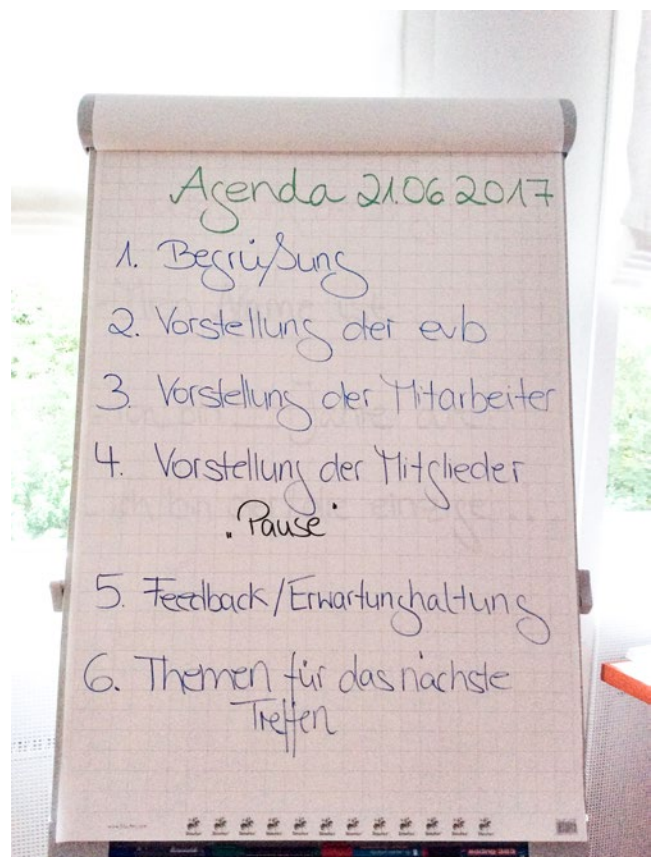 Agenda 21.06.2017
1. Begrüßung
2. Vorstellung der evb
3. Vorstellung der Mitarbeiter
4. Vorstellung der Mitglieder
"Pause"
5. Feedback/Erwartunghaltung
6. Themen für das nächste
Treffen